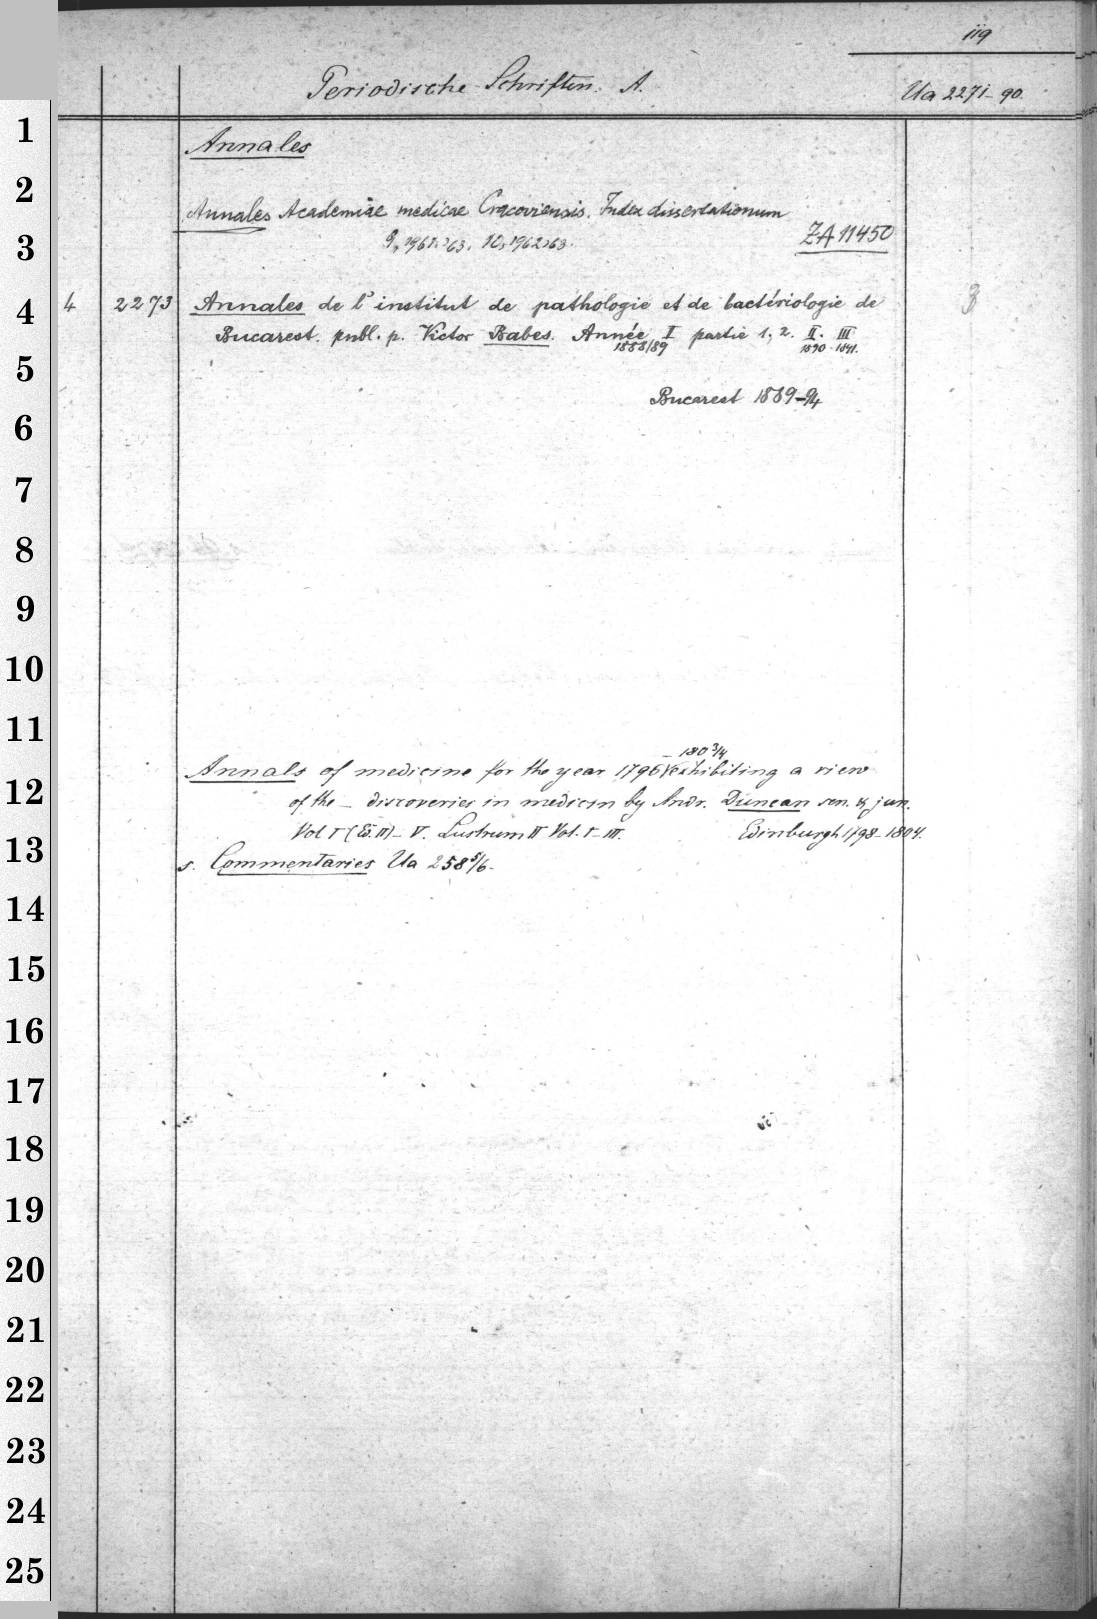 119
Periodische Schriften. A.
Ua 2271-90.
Annales
Annales Academiae medicae Cracoviensis. Index dissertationum
9, 1961/63. 10, 1962/63.
ZA 11450
4 2273 Annales de l'institut de pathologie et de bactériologie de
Bucarest. publ. p. Victor Babes. Année I partie 1, 2. II. III
1888/89 1890 1891.
Bucarest 1889-94
- 180 3/4
Annals of medicine for the year 1796 exhibiting a view
of the - discoveries in medicin by Andr. Duncan sen. & jun.
Vol I (Ed. II) - V. Lustrum II Vol. I - III. Edinburgh 1798-1804.
s. Commentaries Ua 258 5/6.
1
2
3
4
5
6
7
8
9
10
11
12
13
14
15
16
17
18
19
20
21
22
23
24
25